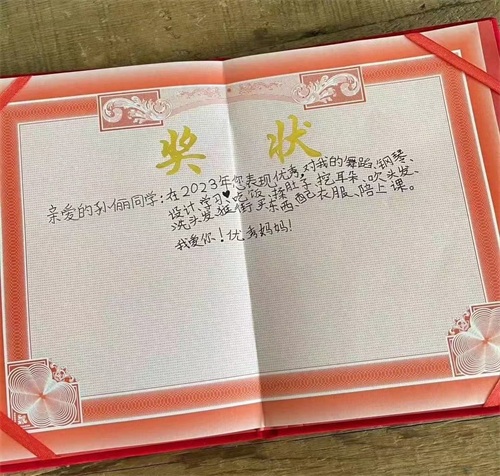 奖 状
亲爱的孙俪同学:在2023年您表现优秀,对我的舞蹈、钢琴、
设计、学习、吃饭、揉肚子、挖耳朵、吹头发、
洗头发、逛街买东西、配衣服、陪上课。
我爱你!优秀妈妈!